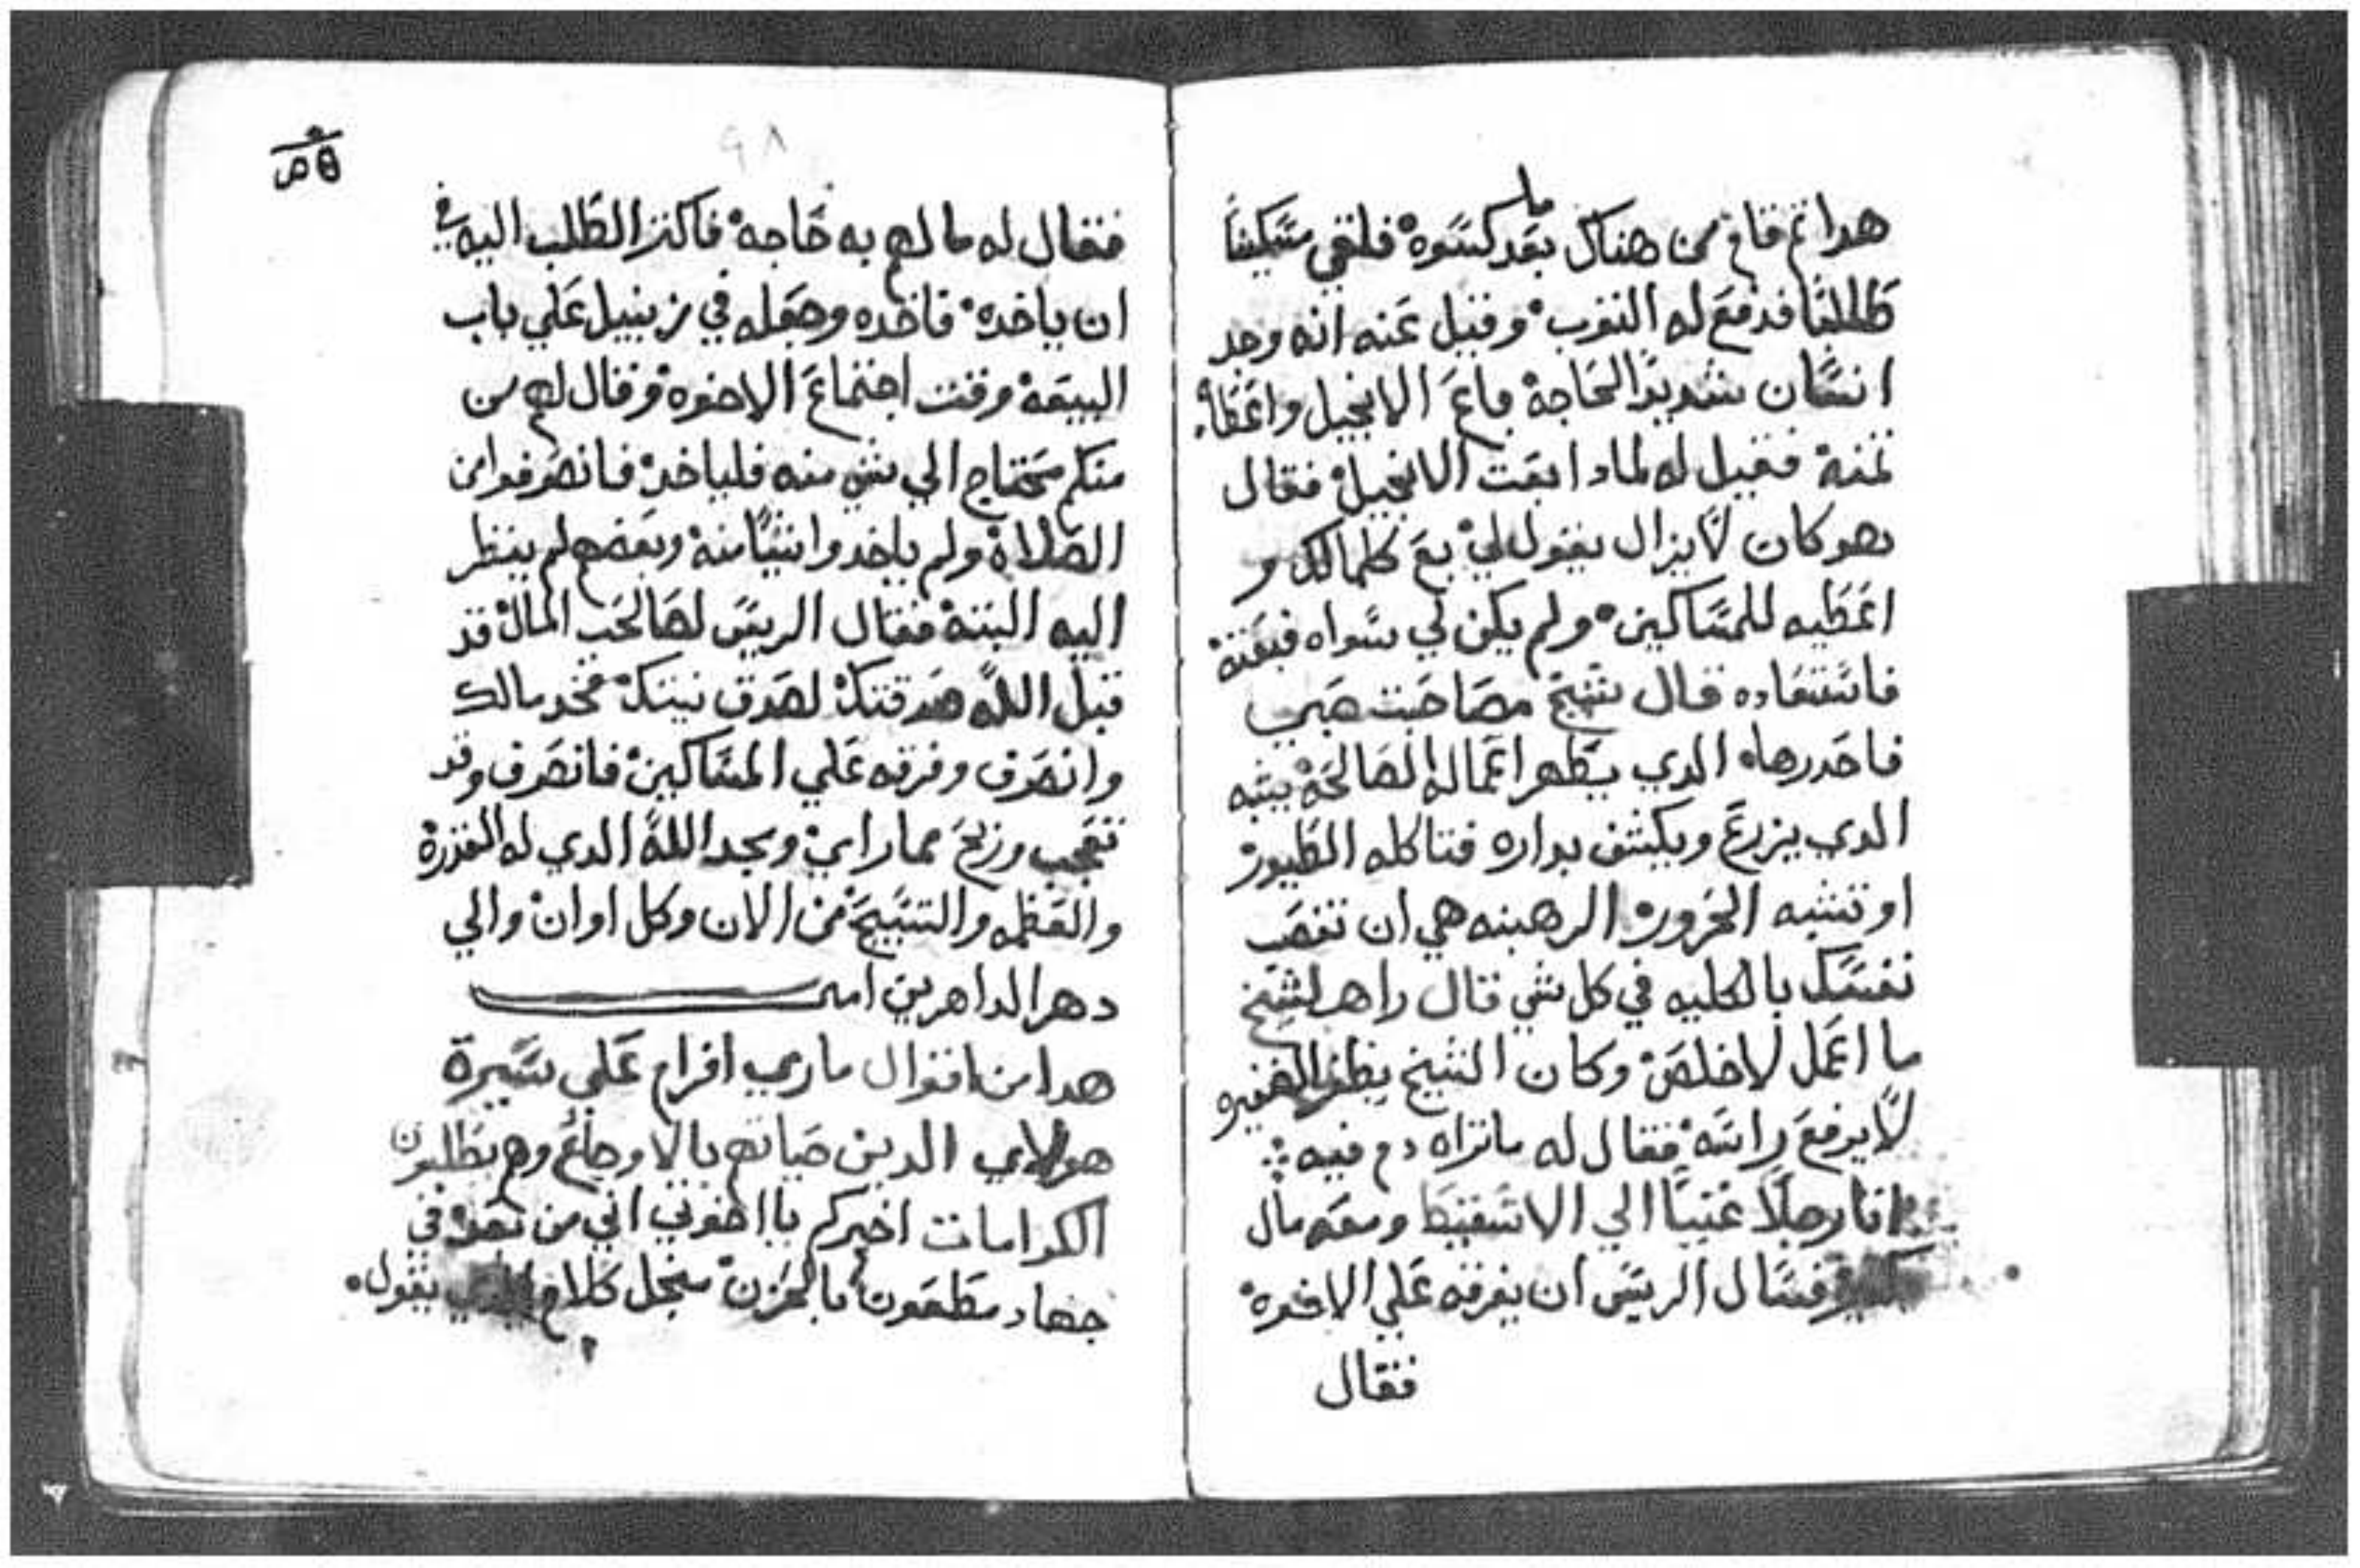 هدا تم قام من هناك بعد ما كسوه فلقي مسكينا
طالبا فدفع له التوب وقيل عنه انه وجد
انسان شديد الحاجة باع الانجيل واعطاه
تمنه فقيل له لمادا بعت الانجيل فقال
هو كان لا يزال يقول لي بع كلما لك و
اعطيه للمساكين ولم يكن لي سواه فبعته
فاستعاده قال شيخ مصاحبت صبي
فاحدرها الدي يظهر اعماله الصالحة يشبه
الدي يزرع ويكشف بداره فتاكله الطيور
او تشبه الحرورة الرهبنه هي ان تغصب
نفسك بالكليه في كل شي قال راهب لشيخ
ما اعمل لاخلص وكان الشيخ يظفر الضفيره
لا يرفع راسه فقال له ما تراه دم فيه
اتا رجلا غنيا الي الاسقيط ومعه مال
فسال الريس ان يفرقه علي الاخوة
فقال
٩٨
فقال له ما لهم به حاجه فاكتر الطلب اليه في
ان ياخده فاخده وجعله في زنبيل علي باب
البيعة وقت اجتماع الاخوه وقال لهم من
منكم محتاج الي شي منه فلياخد فانصرفوا من
الصلاة ولم ياخدوا شيا منه وبعضهم لم ينظر
اليه البتة فقال الريس لصاحب المال قد
قبل الله صدقتك لصدق نيتك فخد مالك
وانصرف وفرقه علي المساكين فانصرف وقد
تعجب وربح مما راي ومجد الله الدي له القدرة
والعظمه والتسبيح من الان وكل اوان والي
دهر الداهرين امين
هدا من اقوال ماري افرام علي سيرة
هولاي الدين حياتهم بالاوجاع وهم يطلبون
الكرامات اخبركم يا اخوتي اني من بعد في
جهاد مطعون بالحزن منجل كلام الدي يقول